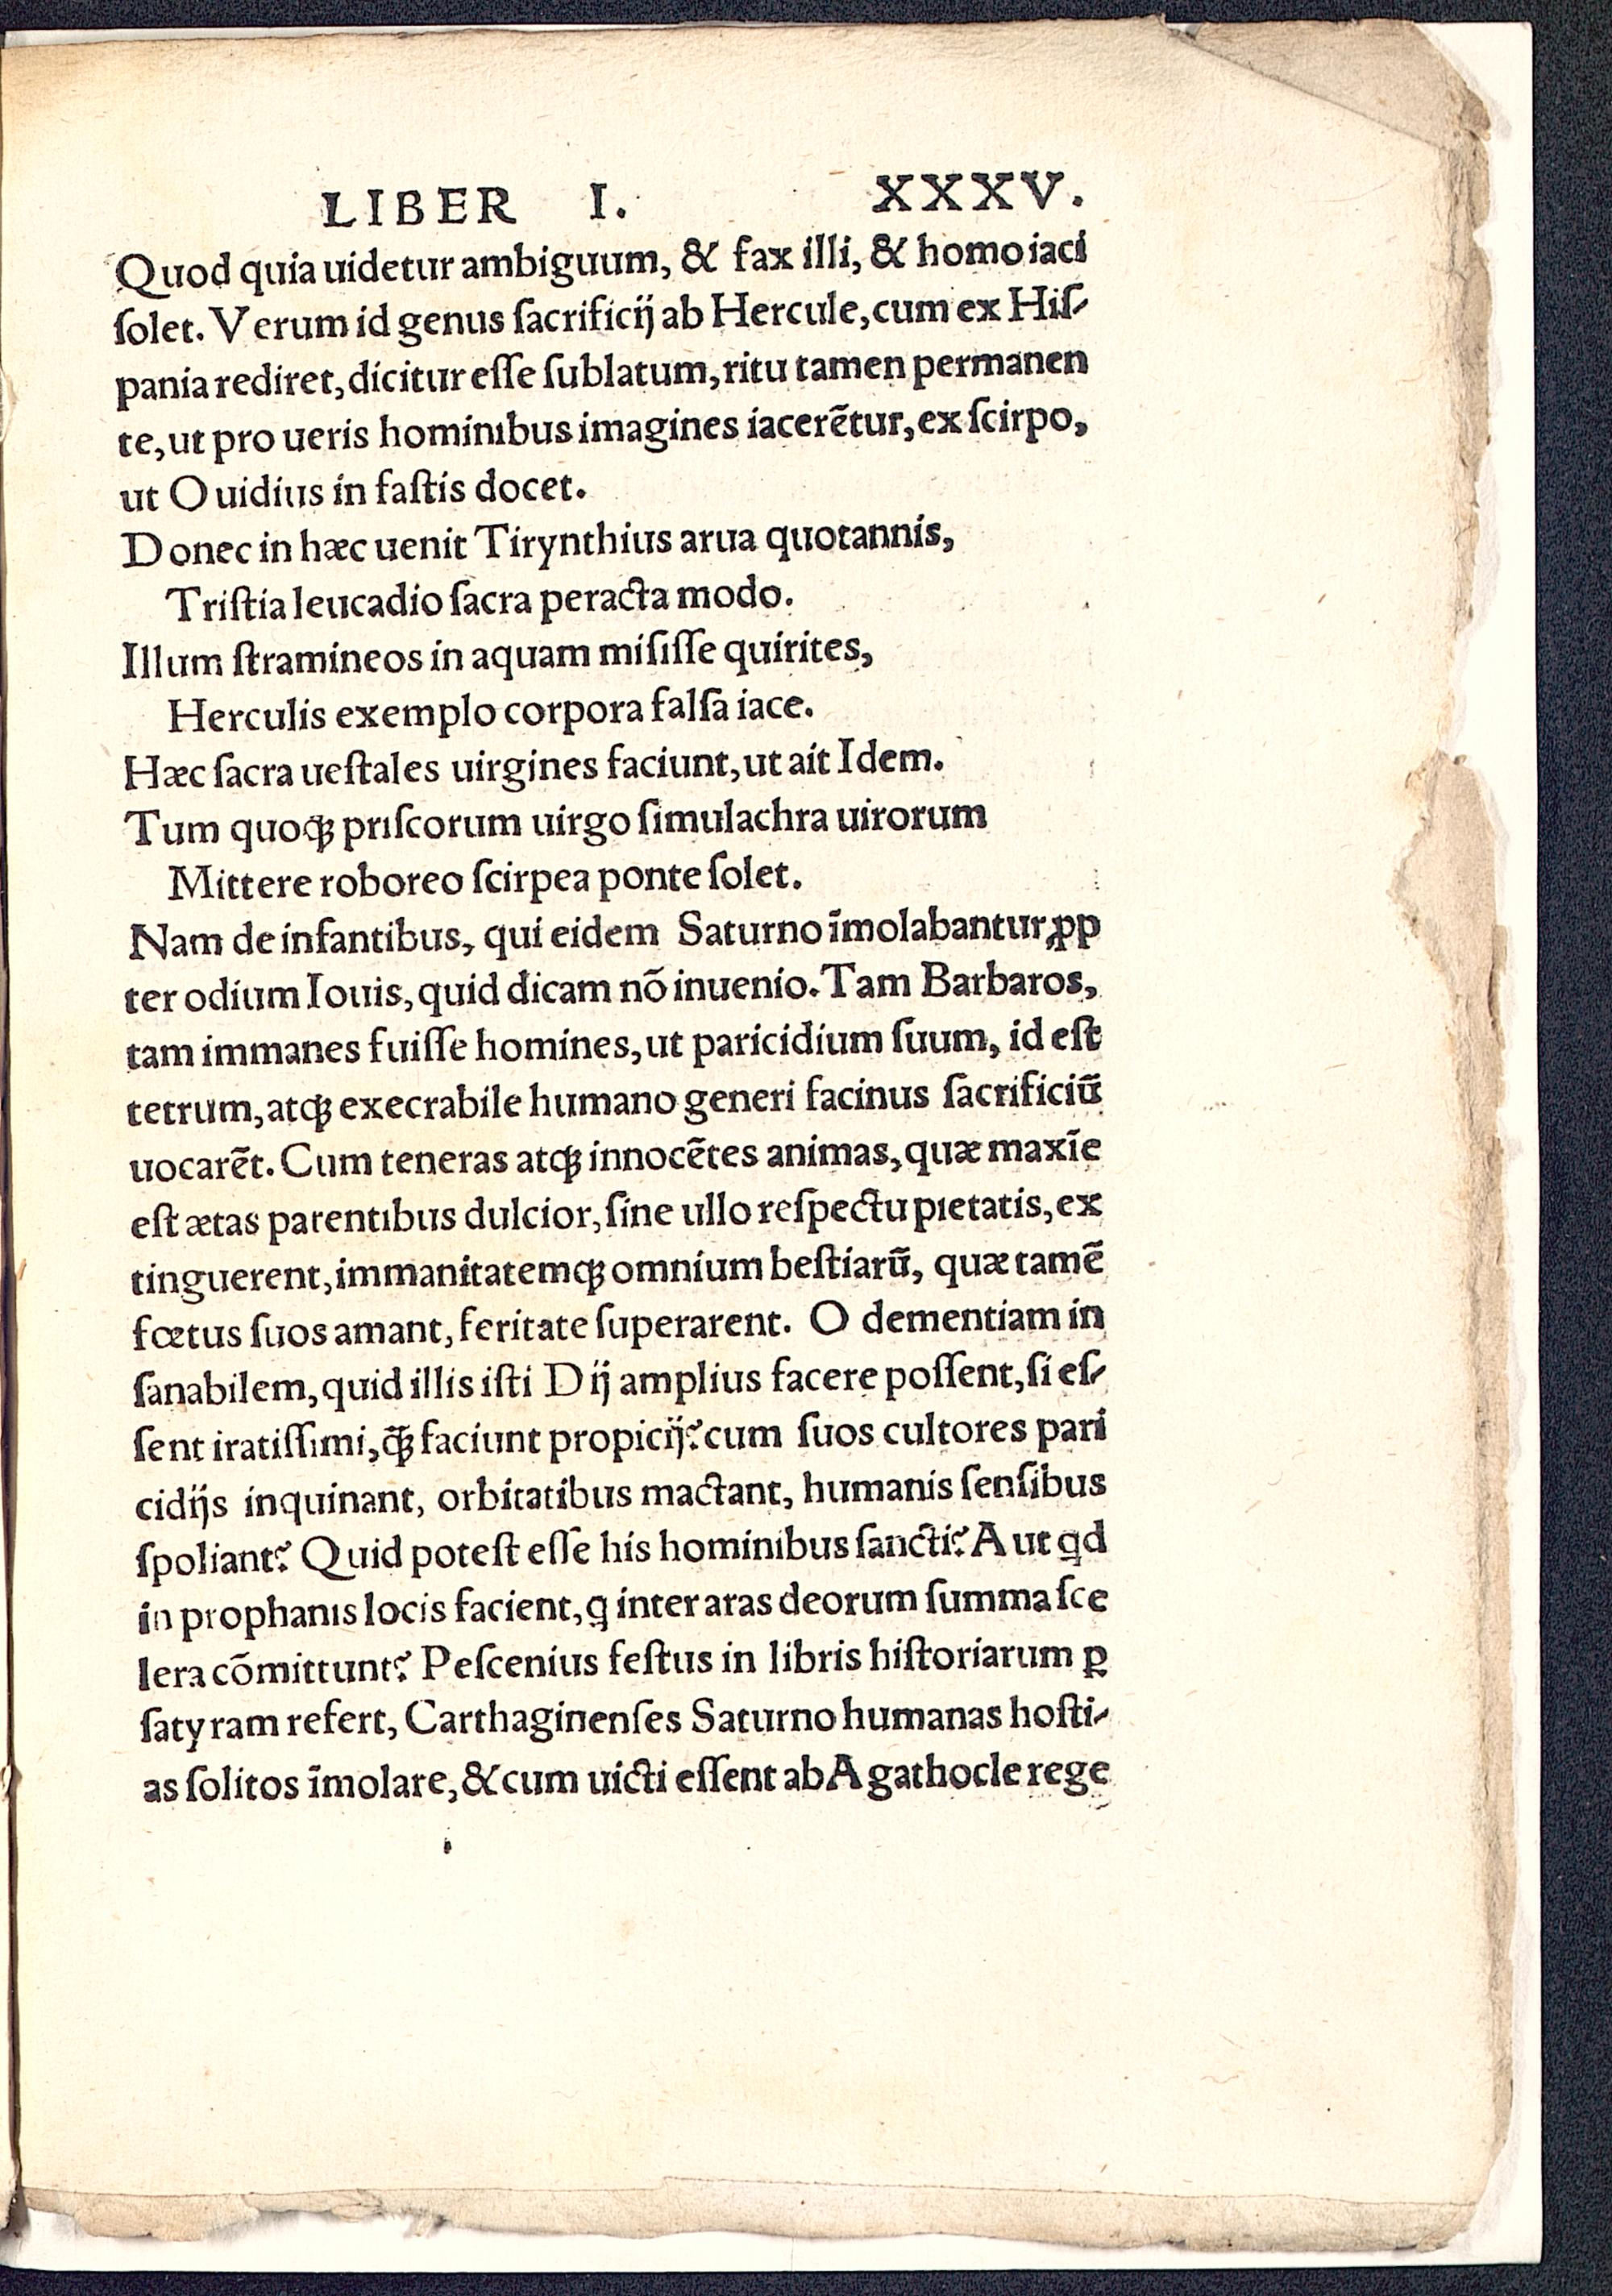 LIBER I. XXXV.
Quod quia uidetur ambiguum, & fax illi, & homo iaci
ſolet. Verum id genus ſacrificij ab Hercule, cum ex Hiſ-
pania rediret, dicitur eſſe ſublatum, ritu tamen permanen
te, ut pro ueris hominibus imagines iacerẽtur, ex ſcirpo,
ut Ouidius in faſtis docet.
Donec in hæc uenit Tirynthius arua quotannis,
Triſtia leucadio ſacra peracta modo.
Illum ſtramineos in aquam miſiſſe quirites,
Herculis exemplo corpora falſa iace.
Hæc ſacra ueſtales uirgines faciunt, ut ait Idem.
Tum quoqꝫ priſcorum uirgo ſimulachra uirorum
Mittere roboreo ſcirpea ponte ſolet.
Nam de infantibus, qui eidem Saturno ĩmolabantur, ꝓp
ter odium Iouis, quid dicam nõ inuenio. Tam Barbaros,
tam immanes fuiſſe homines, ut paricidium ſuum, id eſt
tetrum, atqꝫ execrabile humano generi facinus ſacrificiũ
uocarẽt. Cum teneras atqꝫ innocẽtes animas, quæ maxĩe
eſt ætas parentibus dulcior, ſine ullo reſpectu pietatis, ex
tinguerent, immanitatemqꝫ omnium beſtiarũ, quæ tamẽ
fœtus ſuos amant, feritate ſuperarent. O dementiam in
ſanabilem, quid illis iſti Dij amplius facere poſſent, ſi eſ-
ſent iratiſſimi, q̃ꝫ faciunt propicij? cum ſuos cultores pari
cidijs inquinant, orbitatibus mactant, humanis ſenſibus
ſpoliant? Quid poteſt eſſe his hominibus ſancti? Aut qd
in prophanis locis facient, q inter aras deorum ſumma ſce
lera cõmittunt? Peſcenius feſtus in libris hiſtoriarum ꝑ
ſatyram refert, Carthaginenſes Saturno humanas hoſti-
as ſolitos ĩmolare, & cum uicti eſſent ab Agathocle rege